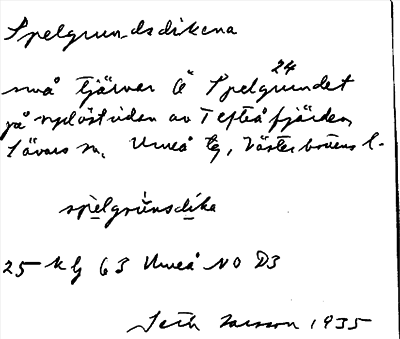 Spelgrundsdikena
små tjärnar å Spelgrundet 24
på sydöstsidan av Tefteåfjärden
Sävars sn. Umeå tg, Västerbottens l.
spelgrunsdika
25 kg 63 Umeå NO D3
Seth Larsson 1935